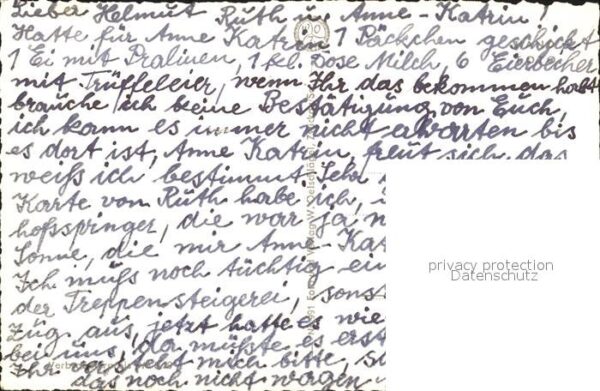 Lieber Helmut Ruth u. Anne-Katrin!
Hatte für Anne Katrin 1 Päckchen geschickt
1 Ei mit Pralinen, 1 kl. Dose Milch, 6 Eierbecher
mit Trüffeleier, wenn Ihr das bekommen habt
brauche ich keine Bestätigung von Euch,
ich kann es immer nicht abwarten bis
es dort ist, Anne Katrin, freut sich das
weiß ich bestimmt. Sehr
Karte von Ruth habe ich,
hofsspringer, die war ja
Sonne, die mir Anne-Kat
Ich muß noch tüchtig ein
der Treppensteigerei, sons
Zug aus, jetzt hatte es wie
bei uns, da müßte es erst
Ihr versteht mich bitte,
das noch nicht wagen
privacy protection
Datenschutz